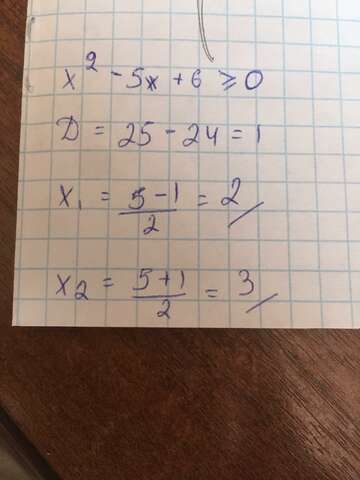 x² - 5x + 6 ≥ 0
D = 25 - 24 = 1
x₁ = (5 - 1)/2 = 2
x₂ = (5 + 1)/2 = 3